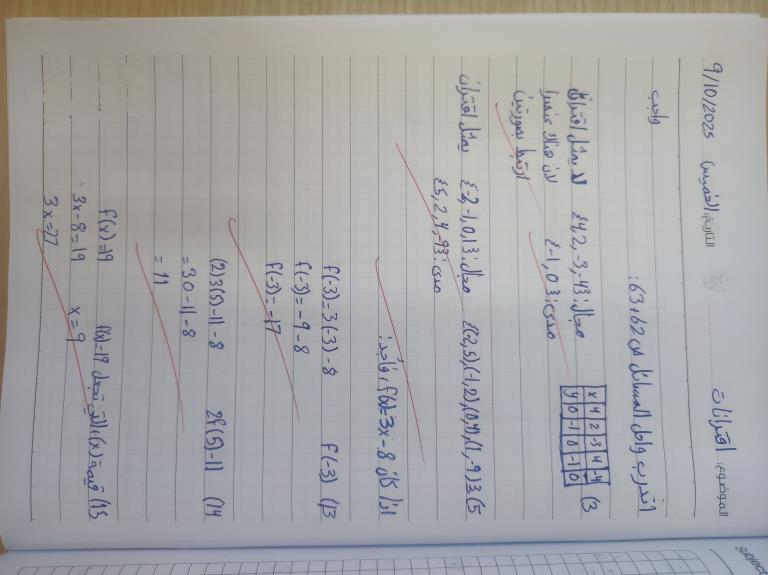 الموضوع: اقترانات التاريخ: الخميس 9/10/2025
واجب
أتدرب وأحل المسائل ص 62 و 63:
(3
x 4 2 -3 4 -4
y 0 -1 0 -1 0
مجال: {4, 2, -3, -4} لا يمثل اقتران
مدى: {-1, 0} لان هناك عنصر
ارتبط بصورتين
5) {(-2,5)(-1,2),(0,4),(1,-9)} مجال: {-2,-1,0,1} يمثل اقتران
مدى: {5, 2, 4, -9}
اذا كان f(x)=3x-8، فأجد:
13) f(-3) f(-3)=3(-3)-8
f(-3)=-9-8
f(-3)=-17
14) 2f(5)-11 (2)3(5)-11-8
=30-11-8
=11
15) قيمة (x) التي تجعل f(x)=19 f(x)=19
x=9 3x-8=19
3x=27